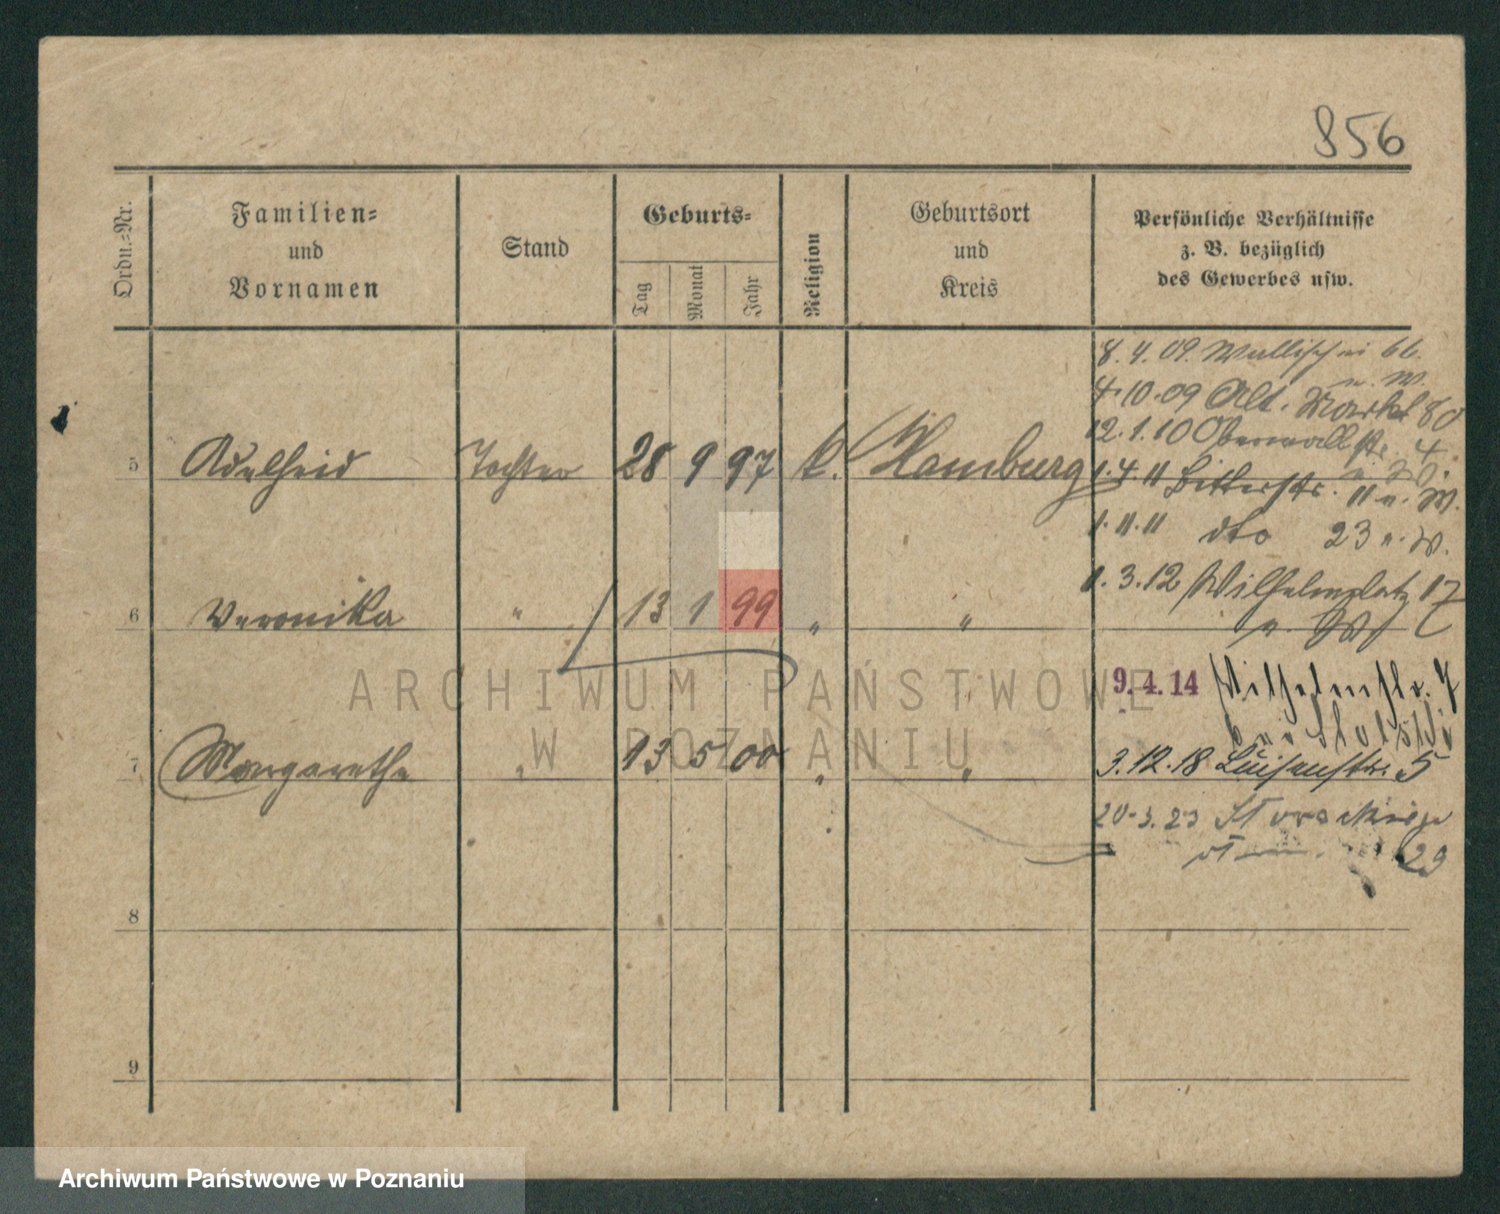 856
Ordn.-Nr.
Familien-
und
Vornamen
Stand
Geburts-
Tag
Monat
Jahr
Religion
Geburtsort
und
Kreis
Persönliche Verhältnisse
z. B. bezüglich
des Gewerbes usw.
8.4.09. Wallischei 66.
4.10.09 Alt. Markt 80
12.1.10 Oberwallstr. 4.
5 Adelheid Tochter 28 9 97 k. Hamburg
1.4.11 Bitterstr. 11 n. W.
1.11.11 dto 23 n. W.
1.3.12 Wilhelmplatz 17
6 Veronika " 13 1 99 " "
9.4.14 Wilhelmstr. 7
7 Margarethe " 13 5 00 " "
3.12.18 Luisenstr. 5
20.3.23
29
8
9
ARCHIWUM PAŃSTWOWE
W POZNANIU
Archiwum Państwowe w Poznaniu